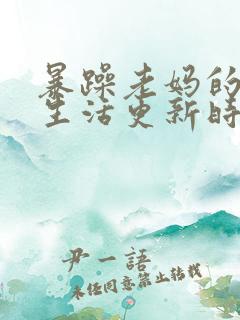 暴躁老妈的
生活更新时
尹一語
未经同意禁止转载